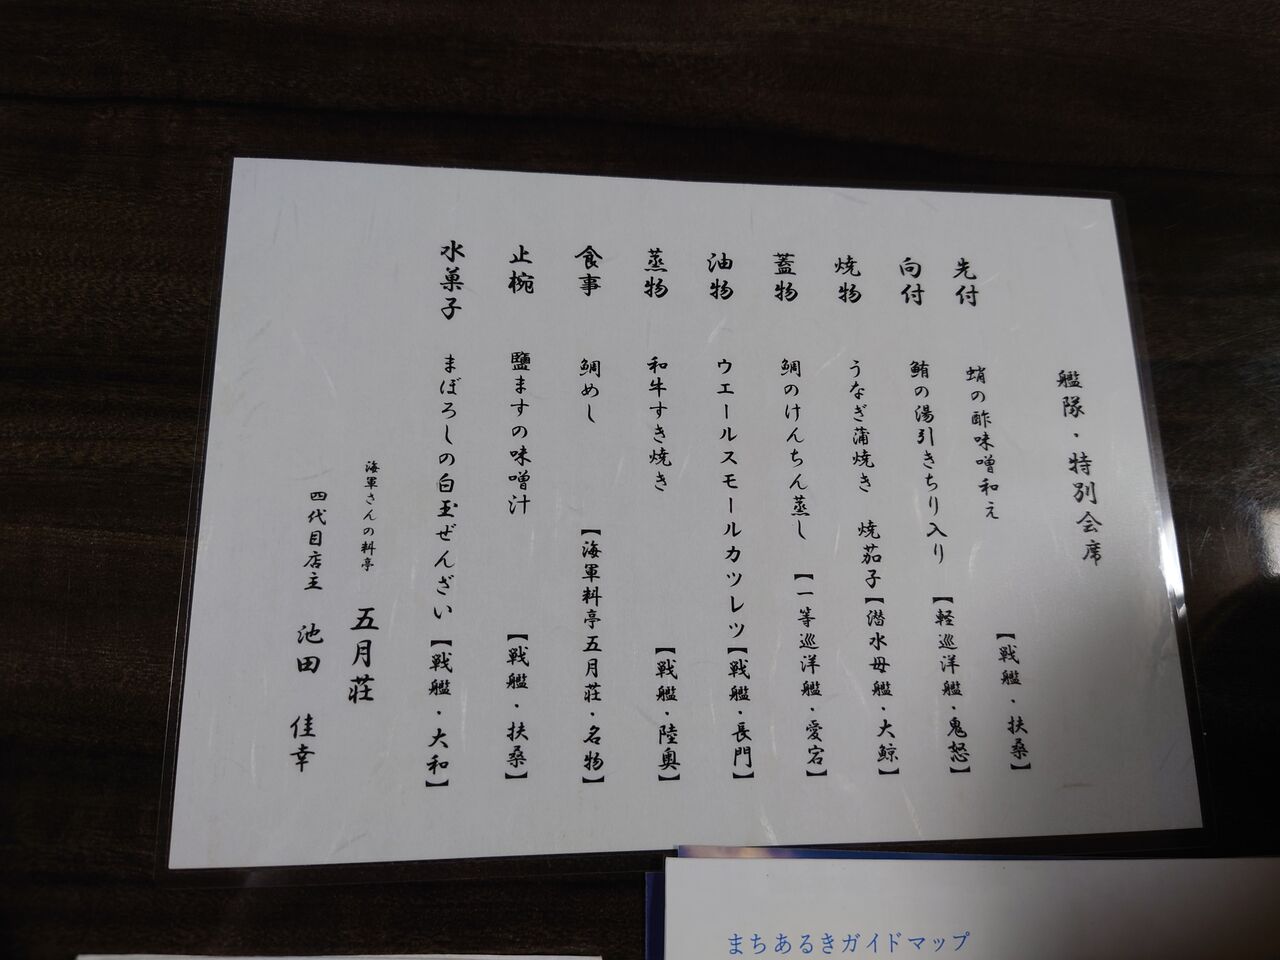 艦隊・特別会席
先付 蛸の酢味噌和え 【戦艦・扶桑】
向付 鮪の湯引きちり入り 【軽巡洋艦・鬼怒】
焼物 うなぎ蒲焼き 焼茄子 【潜水母艦・大鯨】
蓋物 鯛のけんちん蒸し 【一等巡洋艦・愛宕】
油物 ウエールスモールカツレツ 【戦艦・長門】
蒸物 和牛すき焼き 【戦艦・陸奥】
食事 鯛めし 【海軍料亭五月荘・名物】
止椀 鹽ますの味噌汁 【戦艦・扶桑】
水菓子 まぼろしの白玉ぜんざい 【戦艦・大和】
海軍さんの料亭 五月荘
四代目店主 池田 佳幸
まちあるきガイドマップ